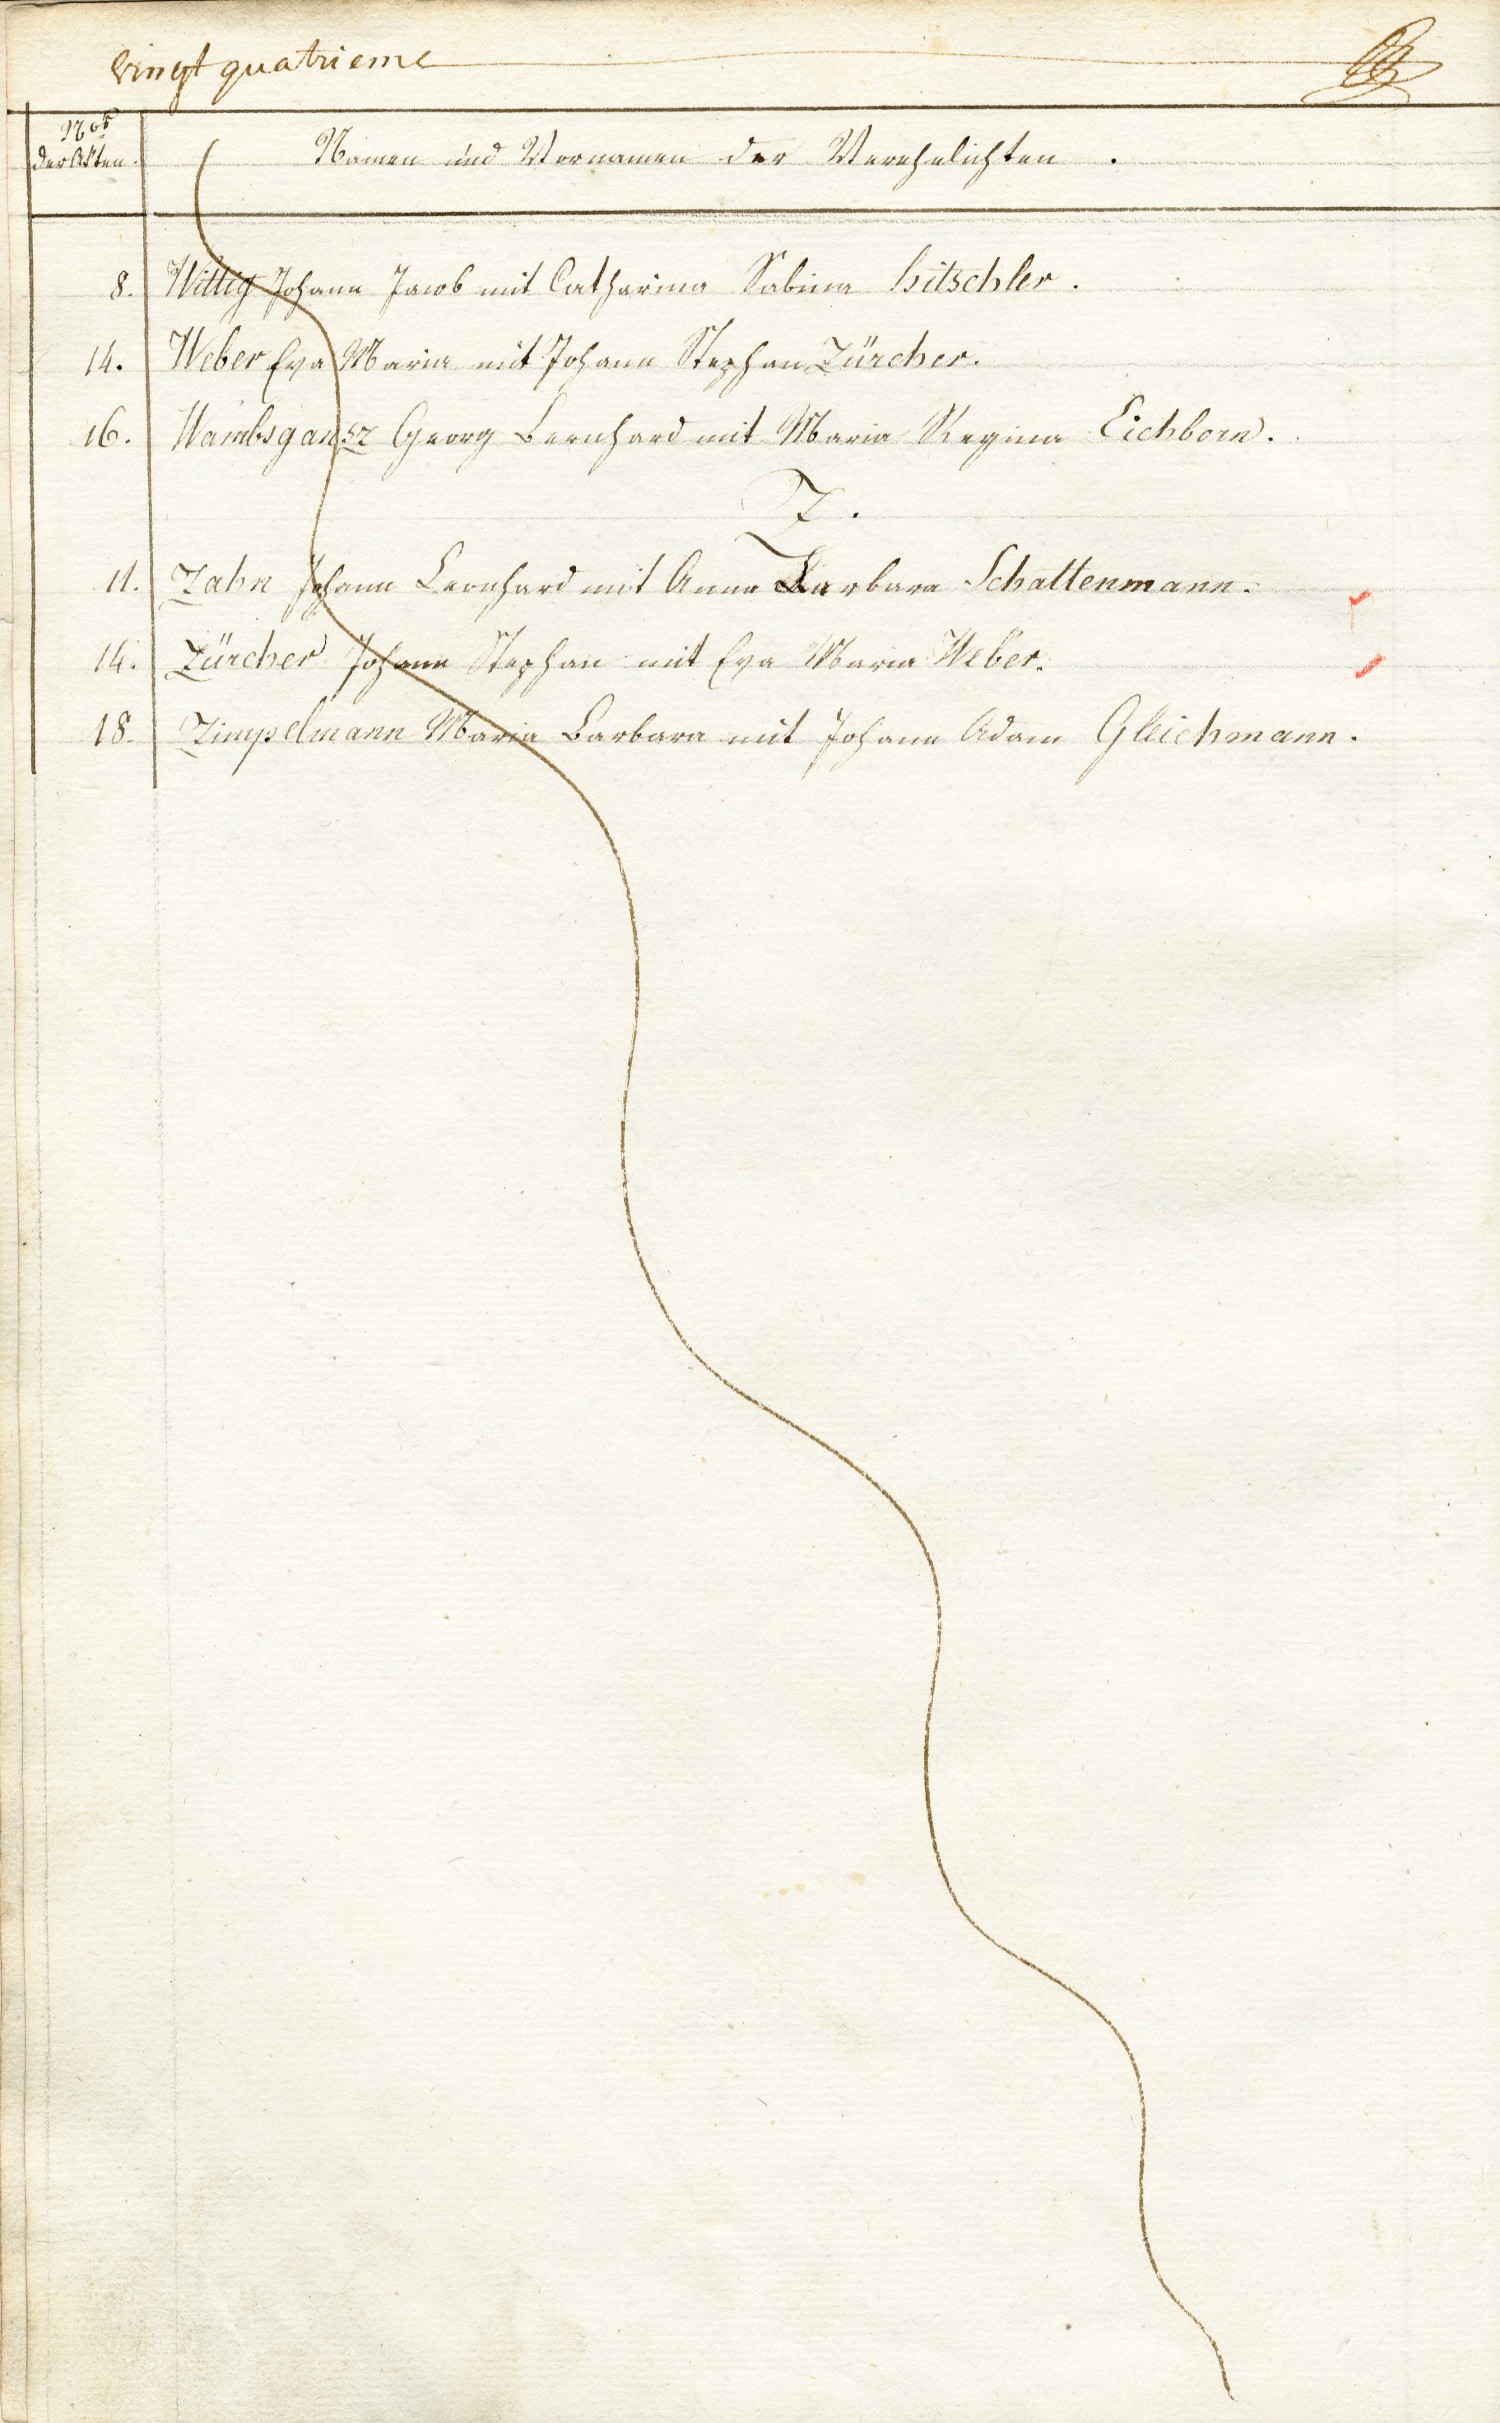 vingt quatrieme
Nos
der Akten.
Namen und Vornamen der Verehelichten.
8. Wittig Johann Jacob mit Catharina Sabina Hitschler.
14. Weber Eva Maria mit Johann Stephan Zürcher.
16. Wambsgansz Georg Bernhard mit Maria Regina Eichborn.
Z.
11. Zahn Johann Leonhard mit Anna Barbara Schattenmann.
14. Zürcher Johann Stephan mit Eva Maria Weber.
18. Zimpelmann Maria Barbara mit Johann Adam Gleichmann.